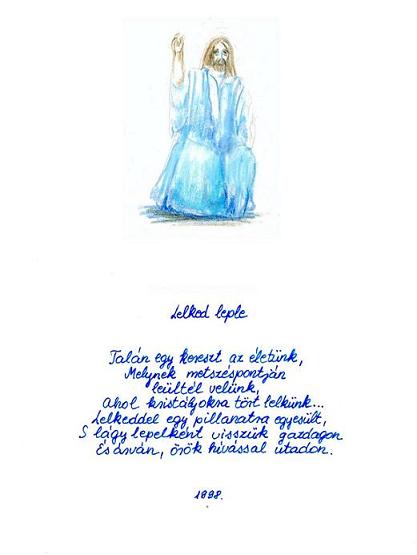 Lelked leple
Talán egy kereszt az életünk,
Melynek metszéspontján
leültél velünk,
Ahol kristályokra tört lelkünk...
Lelkeddel egy pillanatra egyesült,
S lágy lepelként visszük gazdagon
És árván, örök hívással utadon.
1998.